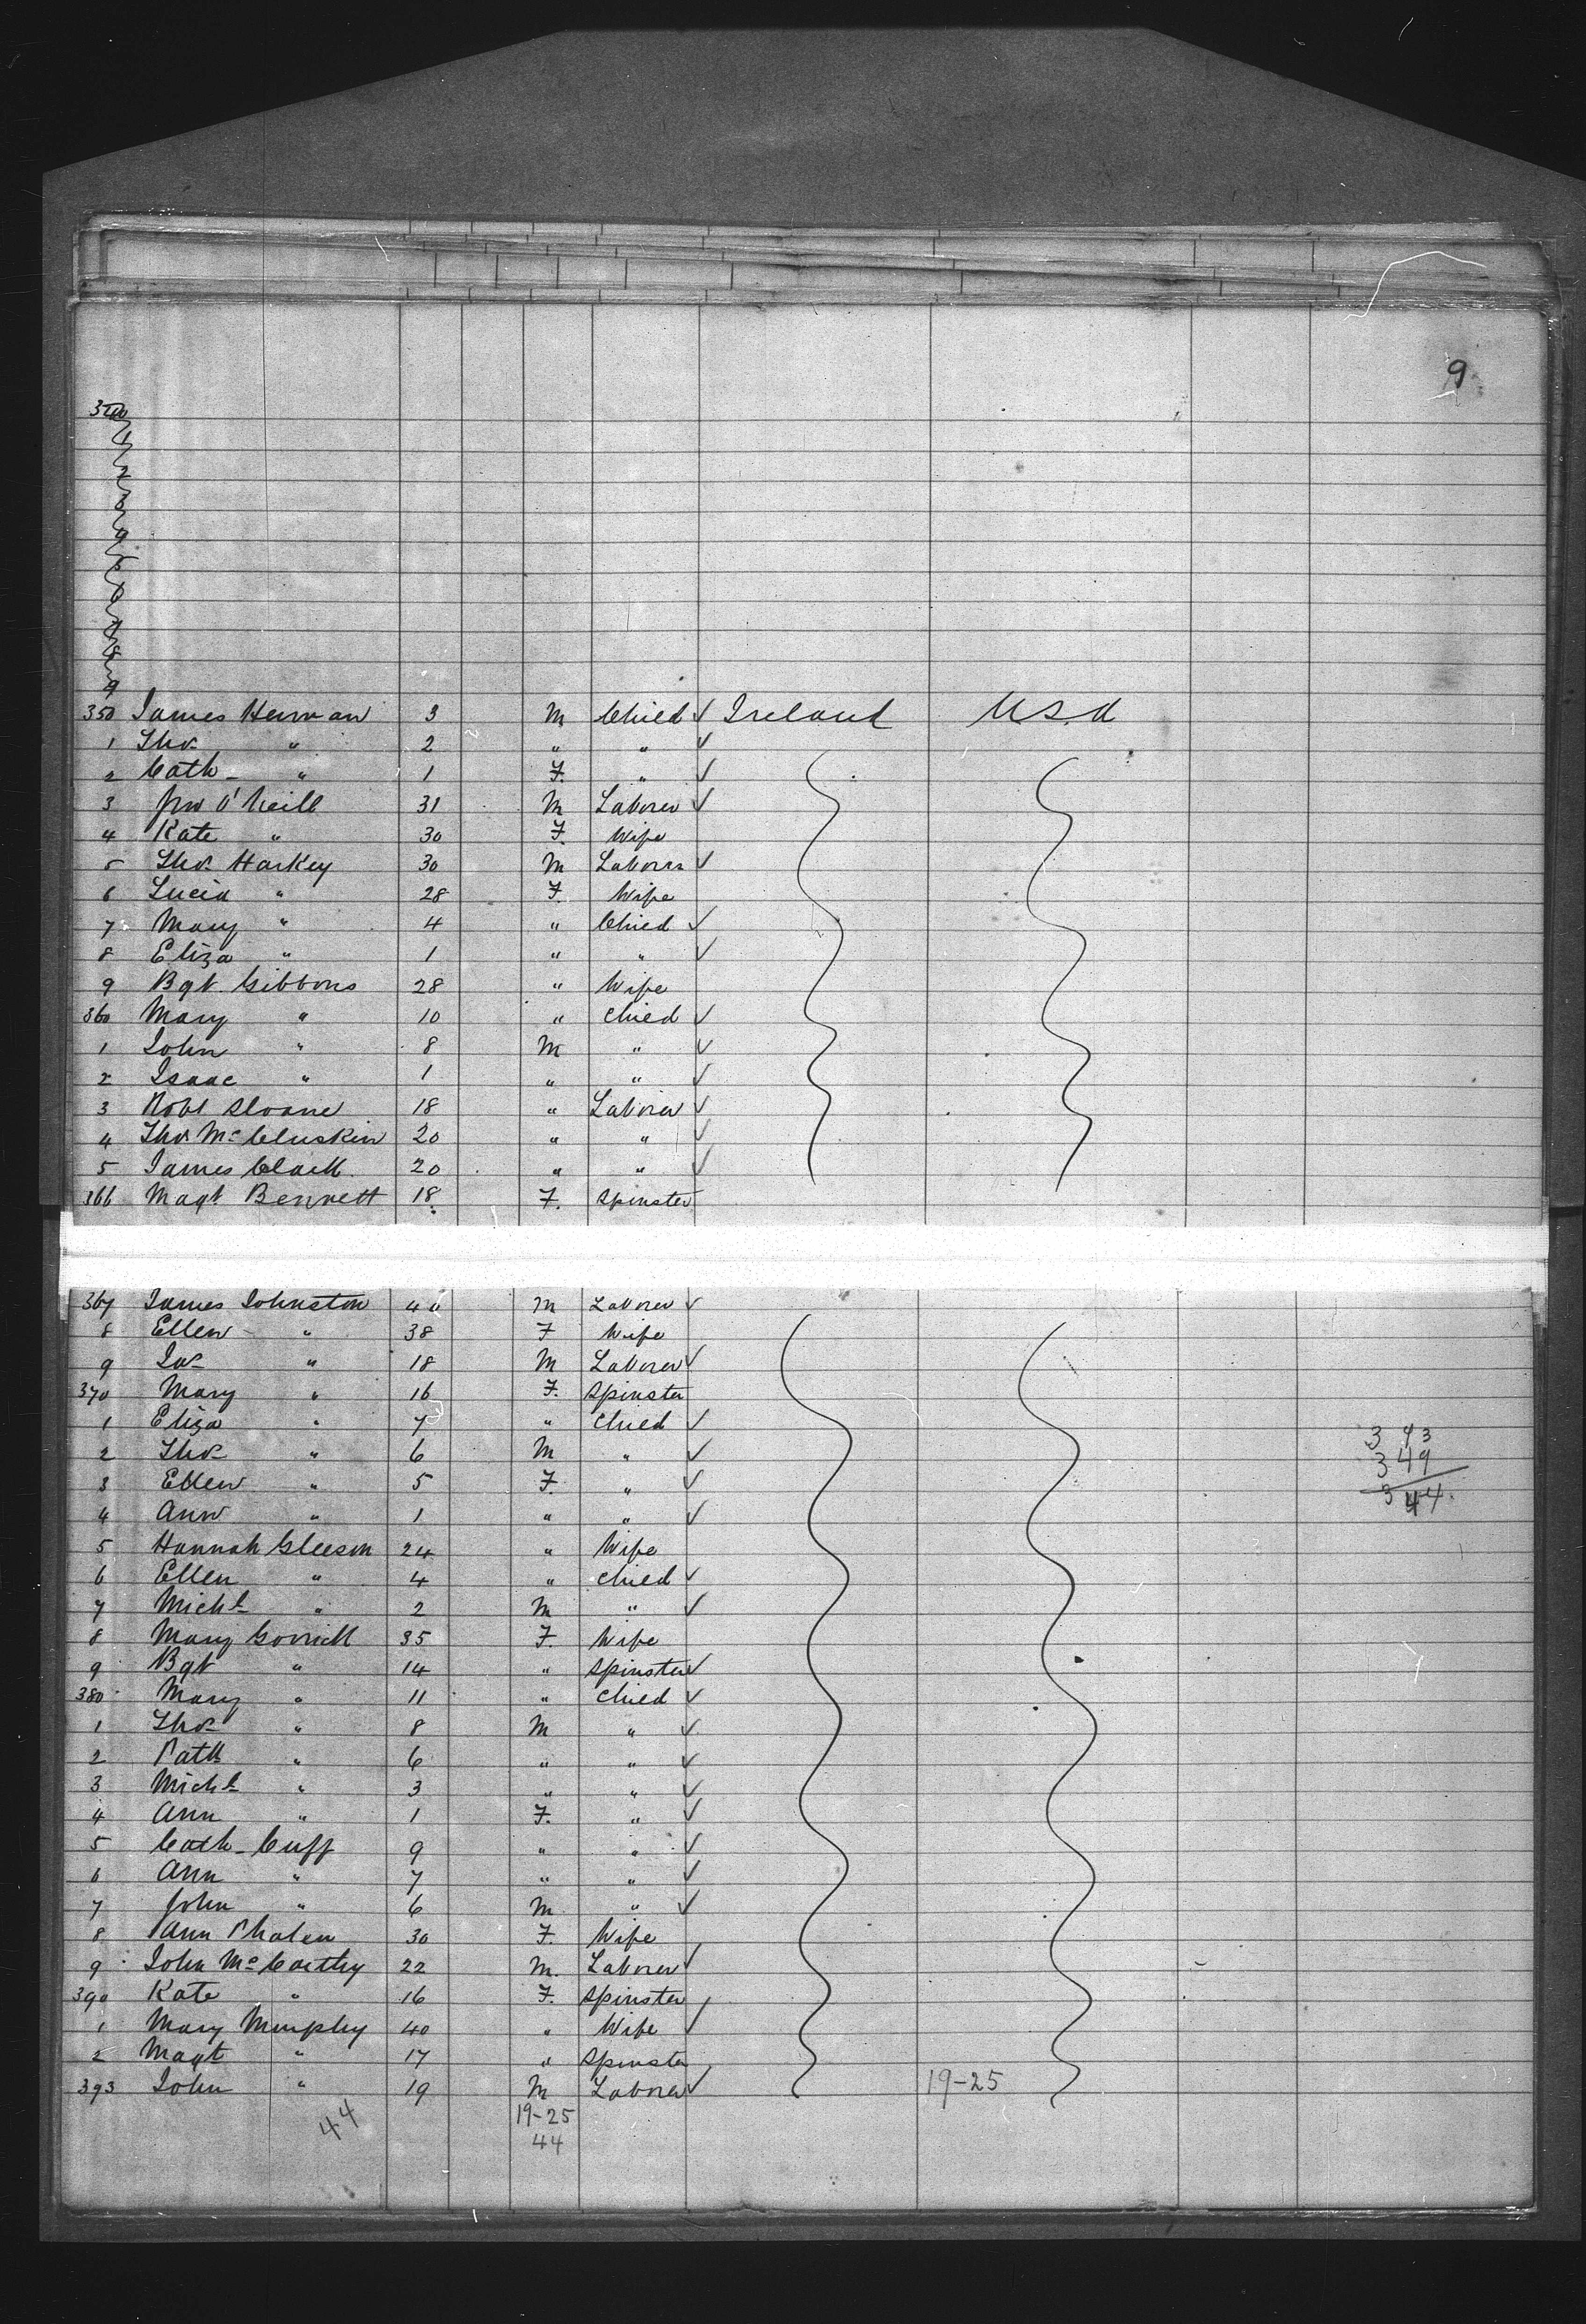 9
340
1
2
3
4
5
6
7
8
9
350 James Hernan 3 M Child ✓ Ireland U.S.A
1 Thos " 2 " " ✓
2 Cath " 1 F. " ✓
3 Jno O'Neill 31 M Laborer ✓
4 Kate " 30 F. Wife
5 Thos. Harkey 30 M Laborer ✓
6 Lucia " 28 F. Wife
7 Mary " 4 " Child ✓
8 Eliza " 1 " " ✓
9 Bgt. Gibbons 28 " Wife
360 Mary " 10 " Child ✓
1 John " 8 M " ✓
2 Isaac " 1 " " ✓
3 Robt Sloane 18 " Laborer ✓
4 Thos. McCluskin 20 " " ✓
5 James Clark 20 " " ✓
366 Magt. Bennett 18 F. Spinster
367 James Johnston 40 M Laborer ✓
8 Ellen " 38 F Wife
9 Jas " 18 M Laborer ✓
370 Mary " 16 F. Spinster
1 Eliza " 7 " Child ✓
2 Thos " 6 M " ✓
3 Ellen " 5 F. " ✓
4 Ann " 1 " " ✓
5 Hannah Gleeson 24 " Wife
6 Ellen " 4 " Child ✓
7 Michl " 2 M " ✓
8 Mary 35 F. Wife
9 Bgt " 14 " Spinster ✓
380 Mary " 11 " Child ✓
1 Thos " 8 M " ✓
2 Patk " 6 " " ✓
3 Michl " 3 " " ✓
4 Ann " 1 F. " ✓
5 Cath Cuff 9 " " ✓
6 Ann " 7 " " ✓
7 John " 6 M " ✓
8 Ann Phalen 30 F. Wife
9 John McCarthy 22 M. Laborer ✓
390 Kate " 16 F. Spinster
1 Mary Murphy 40 " Wife ✓
2 Magt " 17 " Spinster
393 John " 19 M Laborer ✓ 19-25
44 19-25
44
3 93
349
344